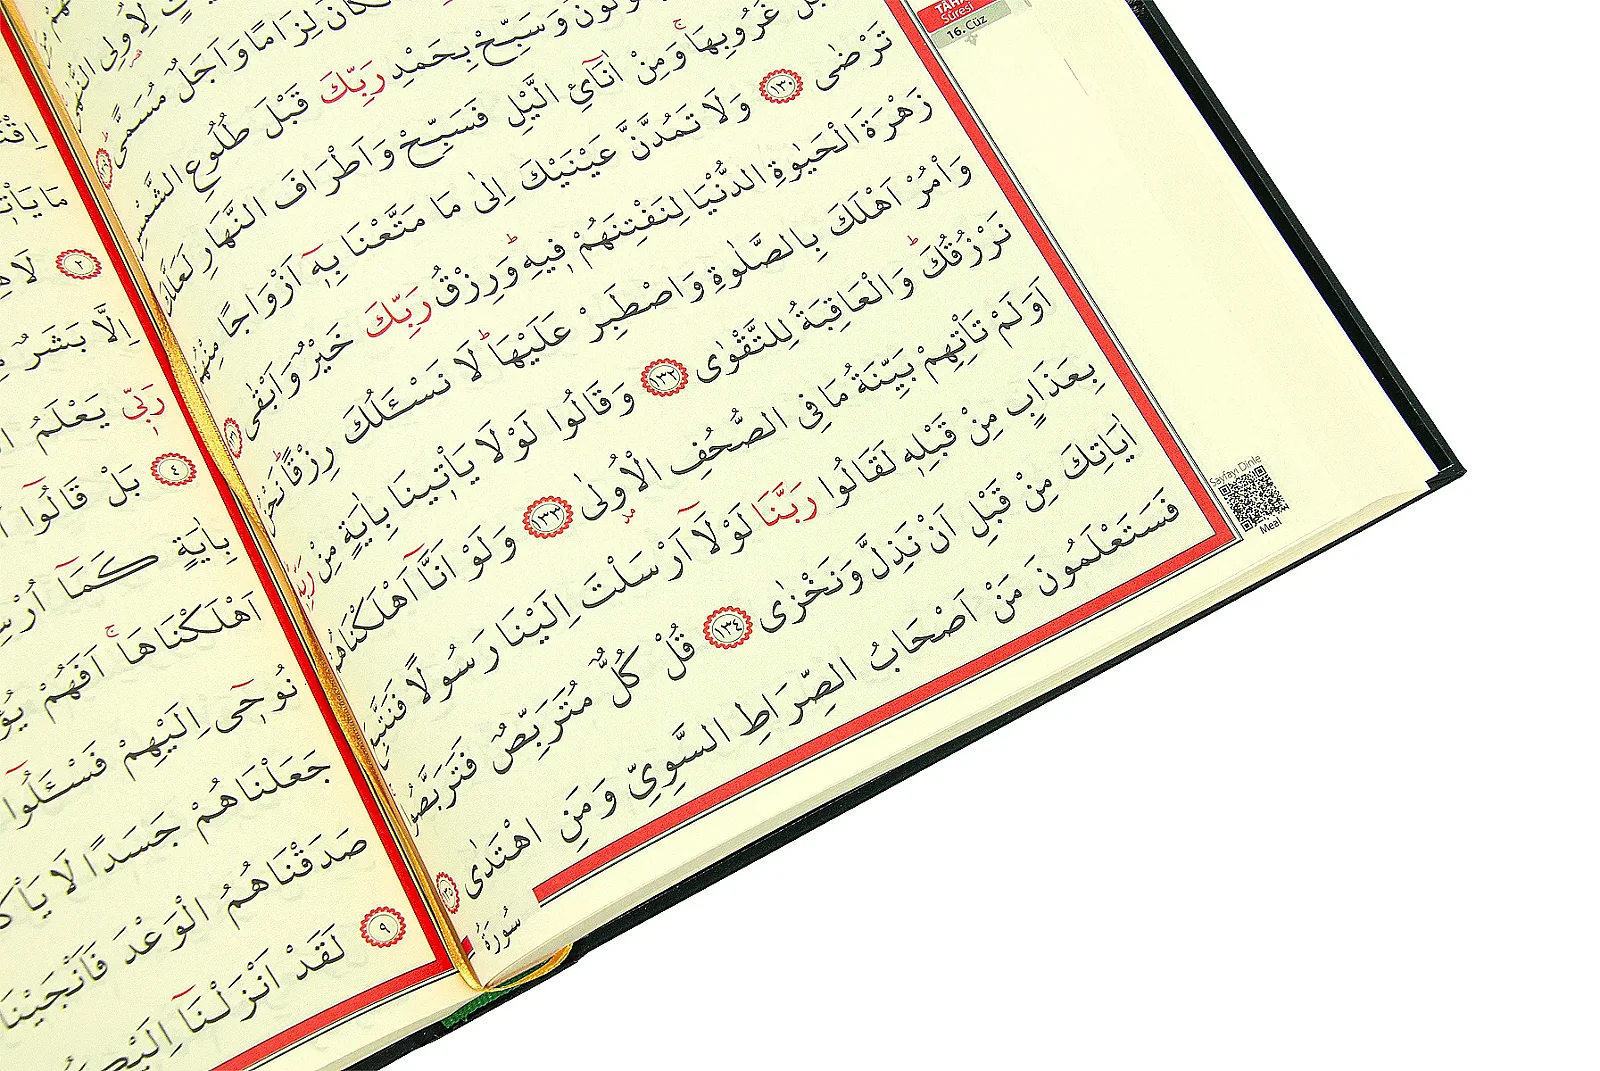 TAHA
Sûresi
16. Cüz
لِاُولِى النُّهٰى
لِزَامًا وَاَجَلٌ مُسَمًّى
وَسَبِّحْ بِحَمْدِ رَبِّكَ قَبْلَ طُلُوعِ الشَّمْسِ
غُرُوبِهَا وَمِنْ اٰنَآئِ الَّيْلِ فَسَبِّحْ وَاَطْرَافَ النَّهَارِ لَعَلَّكَ
تَرْضٰى ﴿١٣٠﴾ وَلَا تَمُدَّنَّ عَيْنَيْكَ اِلٰى مَا مَتَّعْنَا بِهٖٓ اَزْوَاجًا مِنْهُمْ
زَهْرَةَ الْحَيٰوةِ الدُّنْيَا لِنَفْتِنَهُمْ فٖيهِ وَرِزْقُ رَبِّكَ خَيْرٌ وَاَبْقٰى ﴿١٣١﴾
وَأْمُرْ اَهْلَكَ بِالصَّلٰوةِ وَاصْطَبِرْ عَلَيْهَا لَا نَسْـَٔلُكَ رِزْقًا نَحْنُ
نَرْزُقُكَ وَالْعَاقِبَةُ لِلتَّقْوٰى ﴿١٣٢﴾ وَقَالُوا لَوْلَا يَأْتٖينَا بِاٰيَةٍ مِنْ رَبِّهٖ
اَوَلَمْ تَأْتِهِمْ بَيِّنَةُ مَا فِى الصُّحُفِ الْاُولٰى ﴿١٣٣﴾ وَلَوْ اَنَّآ اَهْلَكْنَاهُمْ
بِعَذَابٍ مِنْ قَبْلِهٖ لَقَالُوا رَبَّنَا لَوْلَآ اَرْسَلْتَ اِلَيْنَا رَسُولًا فَنَتَّبِعَ
اٰيَاتِكَ مِنْ قَبْلِ اَنْ نَذِلَّ وَنَخْزٰى ﴿١٣٤﴾ قُلْ كُلٌّ مُتَرَبِّصٌ فَتَرَبَّصُوا
فَسَتَعْلَمُونَ مَنْ اَصْحَابُ الصِّرَاطِ السَّوِىِّ وَمَنِ اهْتَدٰى ﴿١٣٥﴾
سُورَةُ
Sayfayı Dinle
Meal
مَا يَأْتٖ
﴿٢﴾ لَاهِ
اِلَّا بَشَرٌ
رَبّٖى يَعْلَمُ
﴿٤﴾ بَلْ قَالُٓوا
بِاٰيَةٍ كَمَآ اُرْسِ
اَهْلَكْنَاهَا اَفَهُمْ يُؤْ
نُوحٖٓى اِلَيْهِمْ فَسْـَٔلُٓوا
جَعَلْنَاهُمْ جَسَدًا لَا يَأْكُ
صَدَقْنَاهُمُ الْوَعْدَ فَاَنْجَيْنَا
﴿٩﴾ لَقَدْ اَنْزَلْنَآ اِلَيْكُمْ